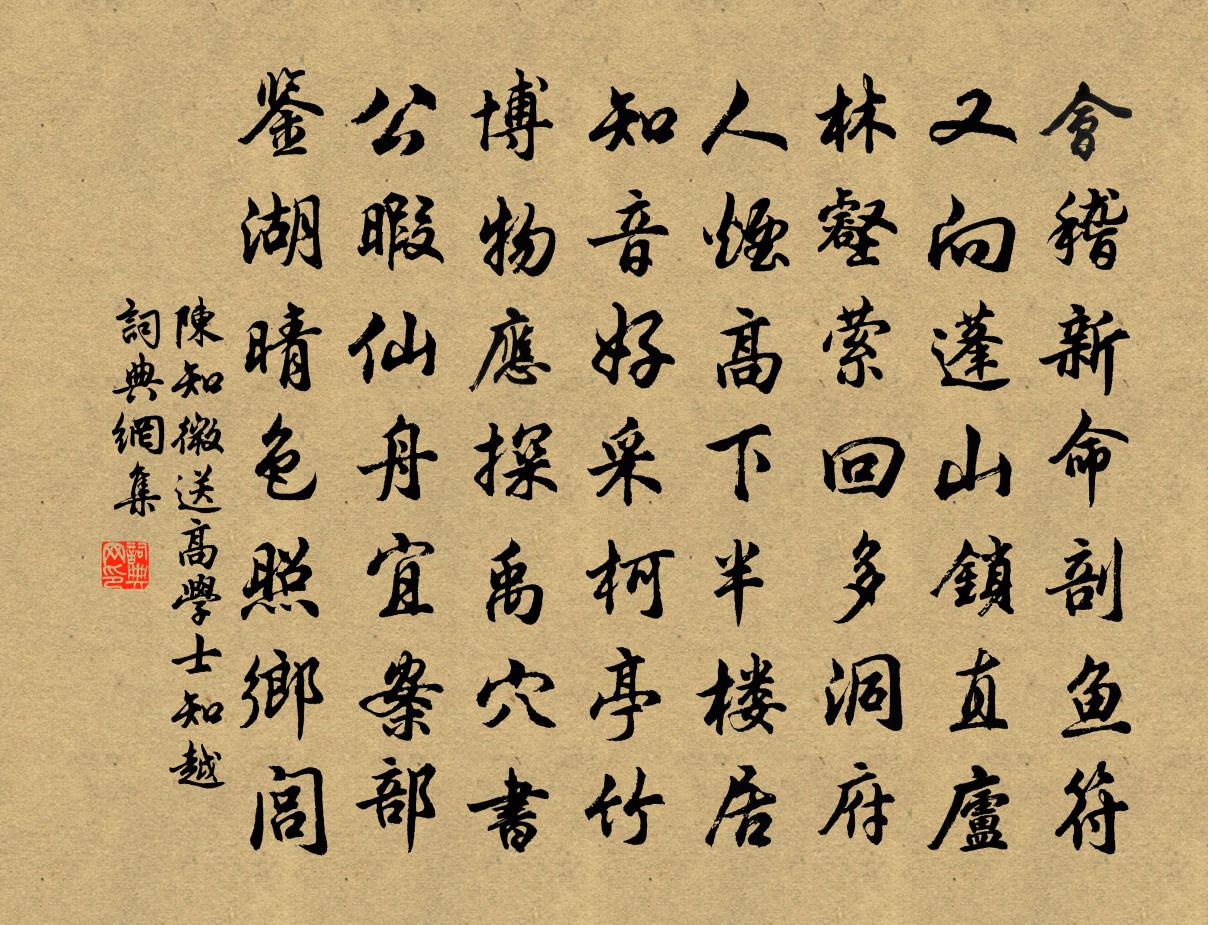 會稽新命剖魚符
又向蓬山鎖直廬
林壑縈回多洞府
人煙高下半楼居
知音好采柯亭竹
博物應探禹穴書
公暇仙舟宜案部
鉴湖晴色照鄉閭
陳知微送高學士知越
詞典網集
詞典网印